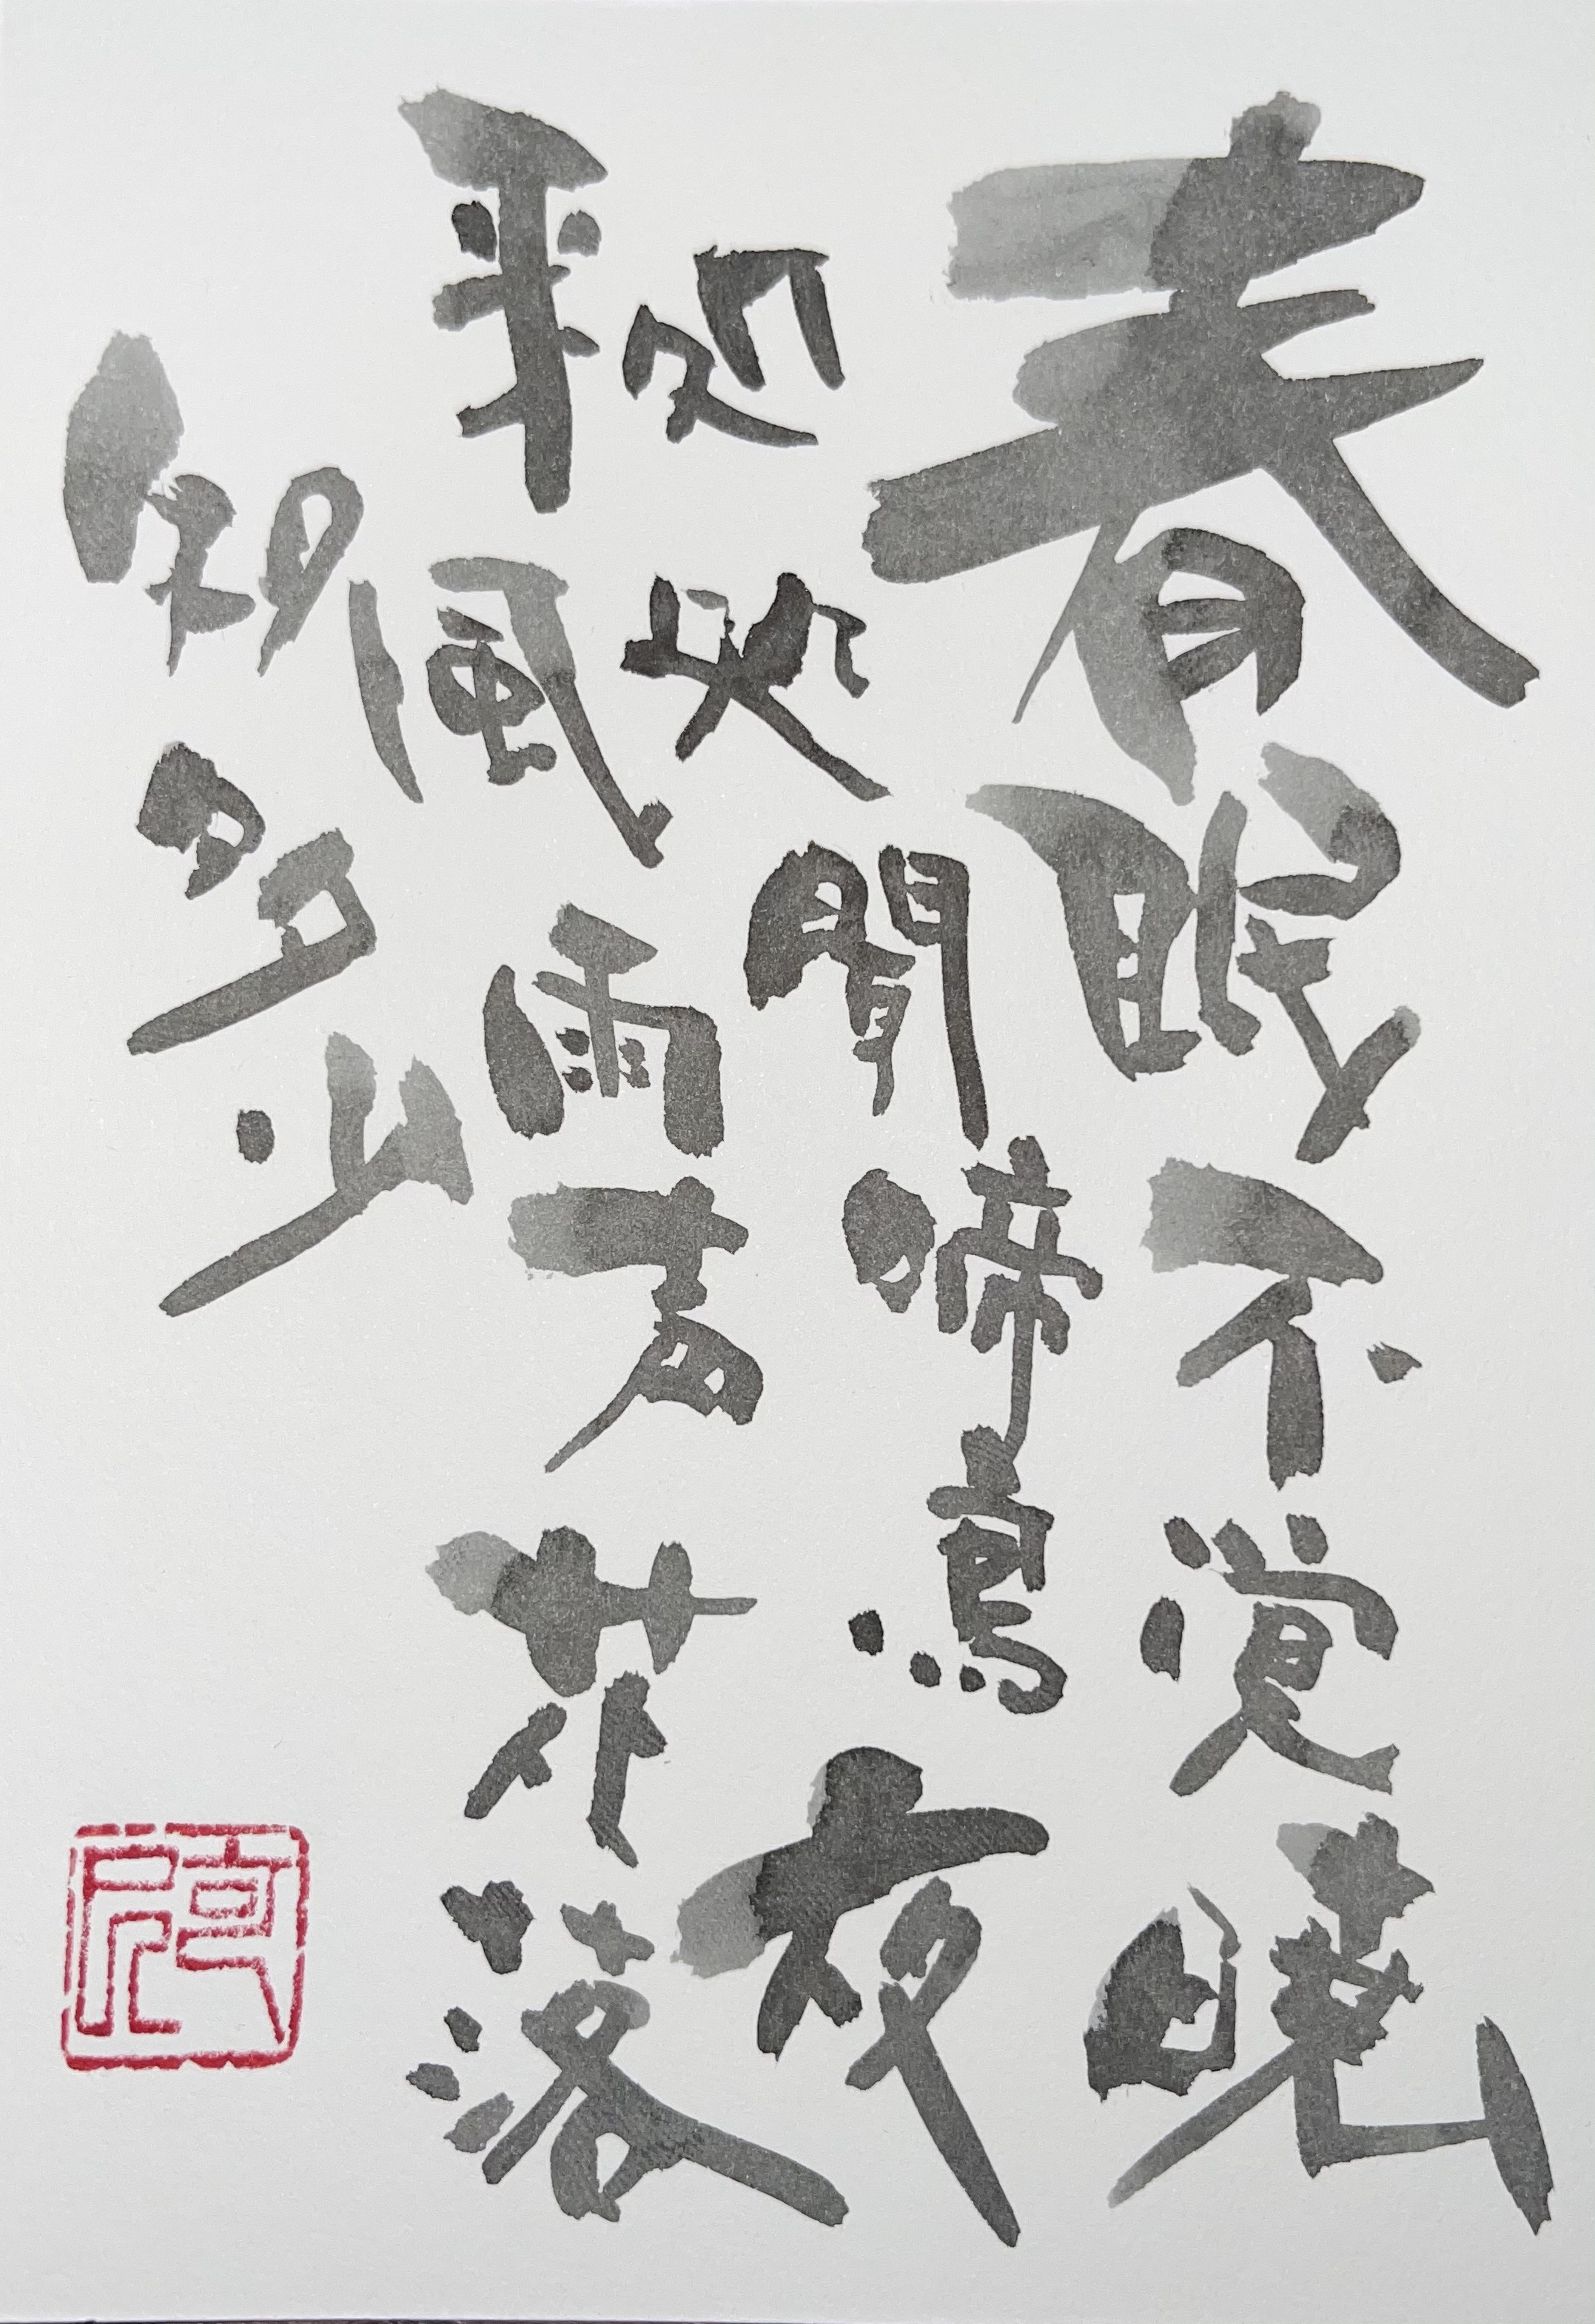 春眠不覚暁
処処聞啼鳥夜
来風雨声花落
知多少